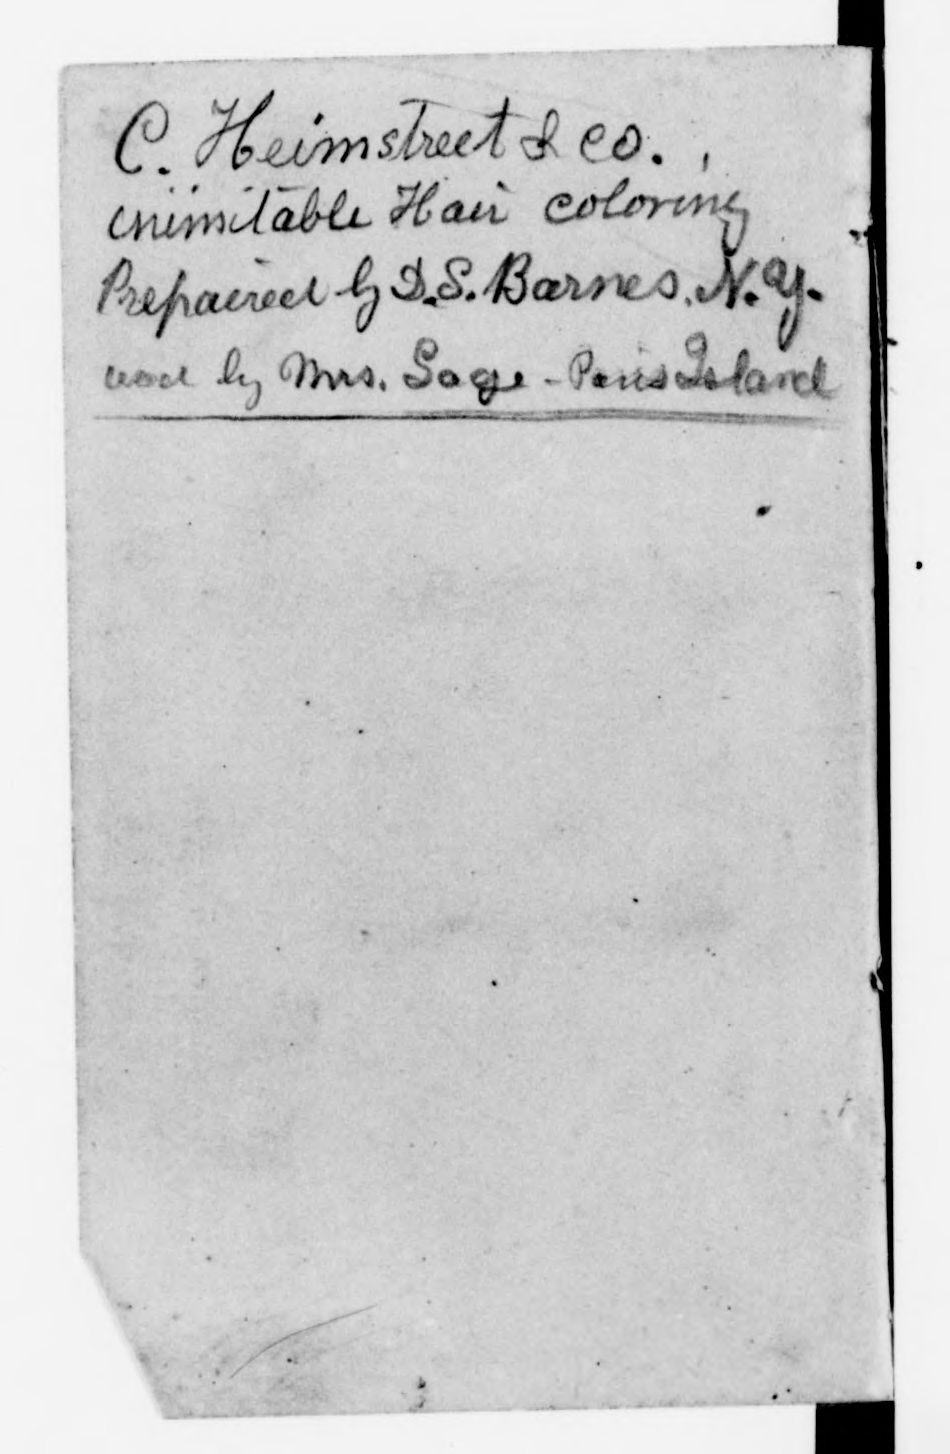 C. Heimstreet & co.,
inimitable Hair coloring
Prepaired by D.S. Barnes. N.Y.
used by Mrs. Sage - Paris Island